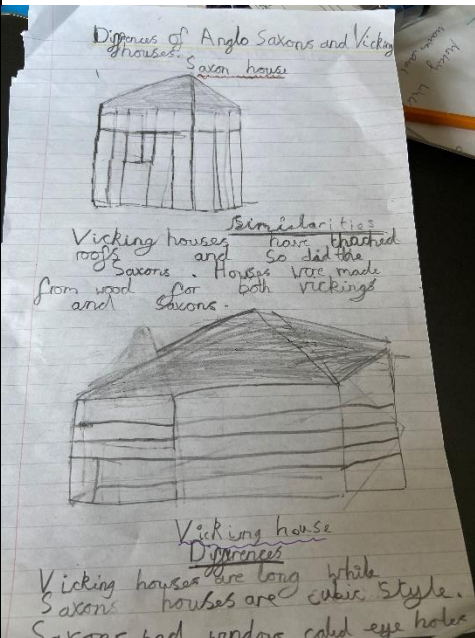 Diffrences of Anglo Saxons and Vicking
houses.
Saxon house
Similarities
Vicking houses have thached
roofs and so did the
Saxons. Houses were made
from wood for both vickings
and Saxons.
Vicking house
Diffrences
Vicking houses are long while
Saxons houses are cubic style.
Saxons had windows caled eye holes